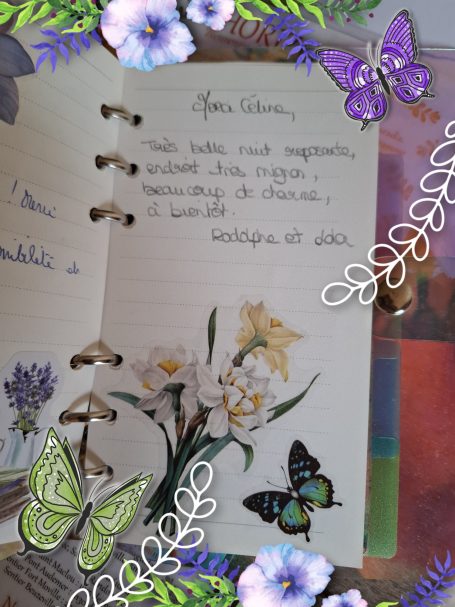 Merci Céline,
Très belle nuit reposante,
endroit très mignon,
beaucoup de charme,
à bientôt.
Rodolphe et
! Merci
nibilité et
Sentier